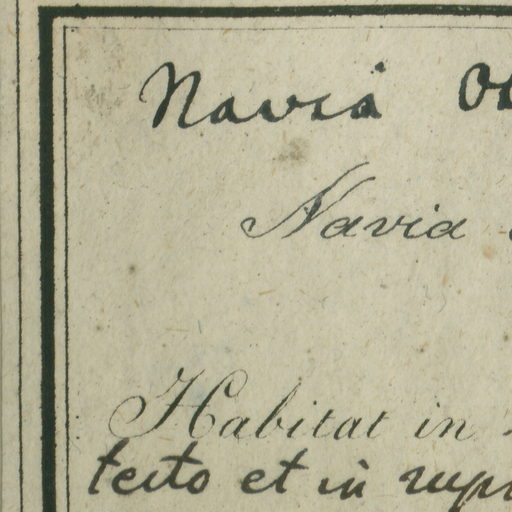 Navia
Navia
Habitat in
tecto et in